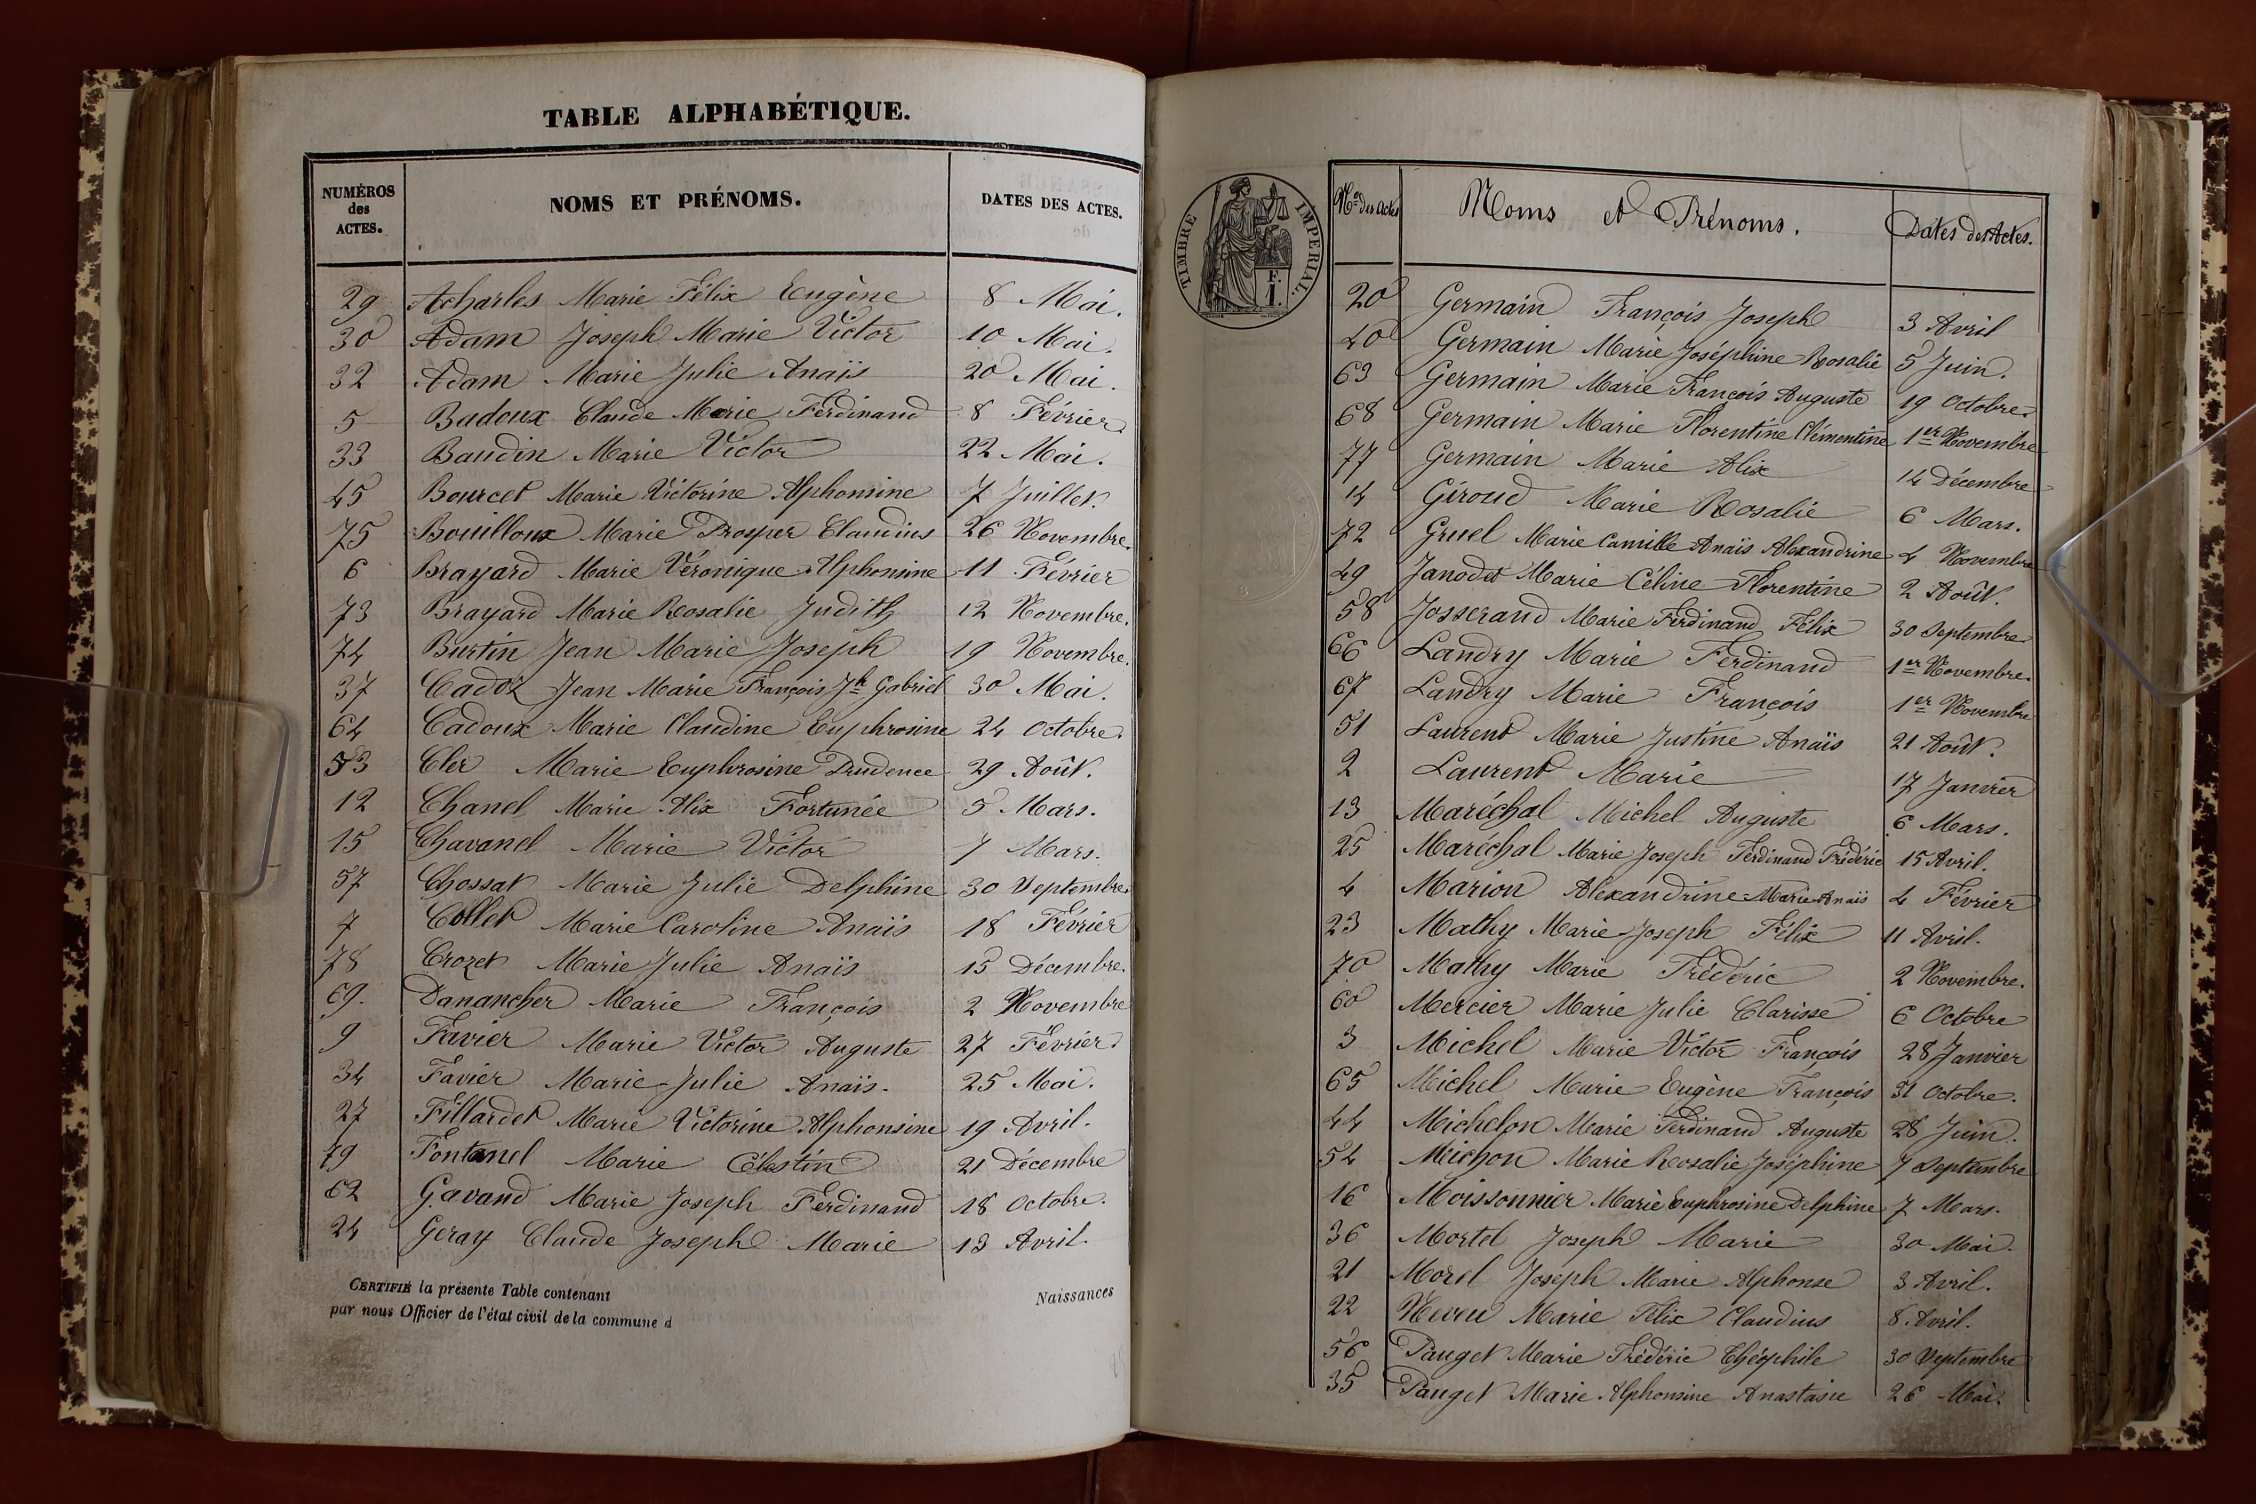 TABLE ALPHABÉTIQUE.
NUMÉROS des ACTES. NOMS ET PRÉNOMS. DATES DES ACTES.
29 Acharles Marie Félix Eugène 8 Mai.
30 Adam Joseph Marie Victor 10 Mai.
32 Adam Marie Julie Anaïs 20 Mai.
5 Badoux Claude Marie Ferdinand 8 Février
33 Baudin Marie Victor 22 Mai.
45 Bourcet Marie Victorine Alphonsine 7 Juillet.
75 Bouilloux Marie Prosper Claudius 26 Novembre.
6 Brayard Marie Véronique Alphonsine 11 Février
73 Brayard Marie Rosalie Judith 12 Novembre.
74 Burtin Jean Marie Joseph 19 Novembre.
37 Cadoz Jean Marie François Jh Gabriel 30 Mai.
64 Cadoux Marie Claudine Euphrosine 24 Octobre.
53 Cler Marie Euphrosine Prudence 29 Août.
12 Chanel Marie Alix Fortunée 5 Mars.
15 Chavanel Marie Victor 7 Mars.
57 Chossat Marie Julie Delphine 30 Septembre.
7 Collet Marie Caroline Anaïs 18 Février
78 Crozet Marie Julie Anaïs 15 Décembre.
69. Danancher Marie François 2 Novembre
9 Favier Marie Victor Auguste 27 Février.
34 Favier Marie Julie Anaïs. 25 Mai.
27 Fillardet Marie Victorine Alphonsine 19 Avril.
79 Fontanel Marie Célestin 21 Décembre
62 Gavand Marie Joseph Ferdinand 18 Octobre.
24 Geray Claude Joseph Marie 13 Avril.
CERTIFIÉ la présente Table contenant Naissances
par nous Officier de l'état civil de la commune d
TIMBRE IMPERIAL.
F.
1.
Nos des Actes Noms et Prénoms. Dates des Actes.
20 Germain François Joseph 3 Avril
40 Germain Marie Joséphine Rosalie 5 Juin.
63 Germain Marie François Auguste 19 Octobre.
68 Germain Marie Florentine Clémentine 1er Novembre
77 Germain Marie Alix 14 Décembre
14 Giroud Marie Rosalie 6 Mars.
72 Gruel Marie Camille Anaïs Alexandrine 4 Novembre
49 Janodet Marie Céline Florentine 2 Août.
58 Josserand Marie Ferdinand Félix 30 Septembre
66 Landry Marie Ferdinand 1er Novembre.
67 Landry Marie François 1er Novembre
51 Laurent Marie Justine Anaïs 21 Août.
2 Laurent Marie 17 Janvier
13 Maréchal Michel Auguste 6 Mars.
25 Maréchal Marie Joseph Ferdinand Frédéric 15 Avril.
4 Marion Alexandrine Marie Anaïs 4 Février
23 Mathy Marie Joseph Félix 11 Avril.
70 Mathy Marie Frédéric 2 Novembre.
60 Mercier Marie Julie Clarisse 6 Octobre
3 Michel Marie Victor François 28 Janvier
65 Michel Marie Eugène François 31 Octobre.
44 Michelon Marie Ferdinand Auguste 28 Juin.
54 Michon Marie Rosalie Joséphine 7 Septembre
16 Moissonnier Marie Euphrosine Delphine 7 Mars.
36 Mortel Joseph Marie 30 Mai.
21 Morel Joseph Marie Alphonse 3 Avril.
22 Neveu Marie Félix Claudius 8 Avril.
56 Pauget Marie Frédéric Théophile 30 Septembre
35 Pauget Marie Alphonsine Anastasie 26 Mai.